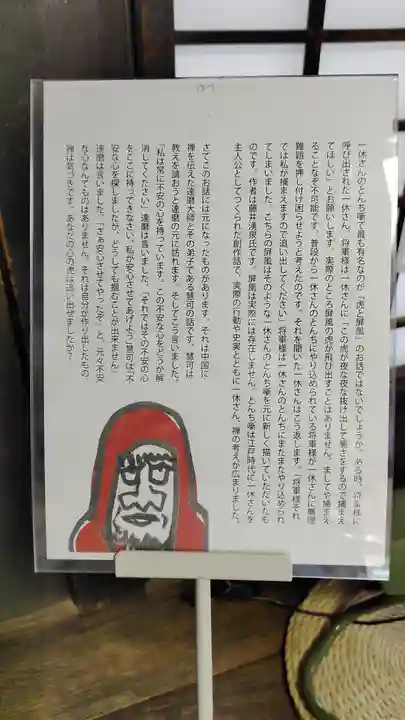 一休さんのとんち噺で最も有名なのが『虎と屏風』のお話ではないでしょうか。ある時、将軍様に
呼び出された一休さん。将軍様は一休さんに「この虎が夜な夜な抜け出して悪さをするので捕まえ
てほしい」とお願いします。実際のところ屏風の虎が飛び出すことはありません。ましてや捕まえ
ることなぞ不可能です。普段から一休さんのとんちにやり込められている将軍様が一休さんに無理
難題を押し付け困らせようと考えたのです。それを聞いた一休さんはこう返します。「将軍様それ
では私が捕まえますので追い出してください」将軍様は一休さんのとんちにまたまたやり込められ
てしまいました。こちらの屏風はそのような一休さんのとんち噺を元に新しく描いていただいたも
のです。作者は藤井湧泉氏です。屏風は実際には存在しません。とんち噺は江戸時代に一休さんを
主人公としてつくられた創作話で、実際の行動や史実とともに一休さん、禅の考えが広まりました。
さてこのお話には元になったものがあります。それは中国に
禅を伝えた達磨大師とその弟子である慧可の話です。慧可は
教えを請おうと達磨の元に訪れます。そしてこう言いました。
「私は常に不安の心を持っています。この不安な心をどうか解
消してください」達磨は言いました。「それでは不安の心
をここに持ってきなさい。私が安心させてあげよう」慧可は「不
安な心を探しましたが、どうしても掴むことが出来ません」
達磨は言いました。「さぁ安心させてやったぞ」と。元々不安
な心なんてものはありません。それは自分が作り出したもの。
禅は気づきです。あなたの心の虎は追い出せましたか？